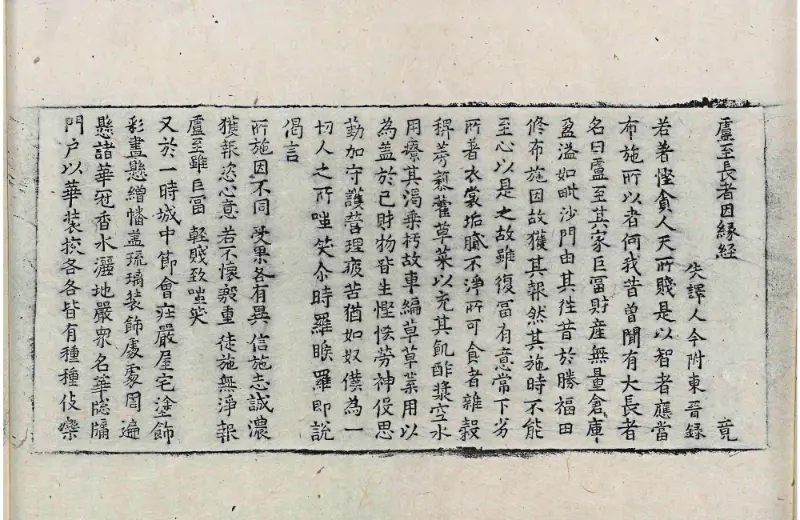 盧至長者因緣經 竟
失譯人今附東晉錄
若著慳貪人天所賤是以智者應當
布施所以者何我昔曾聞有大長者
名曰盧至其家巨冨財産無量倉庫
盈溢如毗沙門由其往昔於勝福田
修布施因故獲其報然其施時不能
至心以是之故雖復冨有意常下劣
所著衣裳垢膩不淨所可食者雜穀
稗莠藜藿草菜以充其飢酢漿空水
用療其渴乘朽故車編草草葉用以
為蓋於己財物皆生慳悋勞神役思
勤加守護營理疲苦猶如奴僕為一
切人之所嗤笑尒時羅睺羅即說
偈言
所施因不同 受果各有異 信施志誠濃
獲報㳄心意 若不懷殷重 徒施無淨報
盧至雖巨冨 輕賤致嗤笑
又於一時城中節會莊嚴屋宅塗飾
彩畫懸繒幡蓋琉璃裝飾處處周遍
懸諸華冠香水灑地嚴衆名華窓牖
門户以華裝挍各各皆有種種伎樂